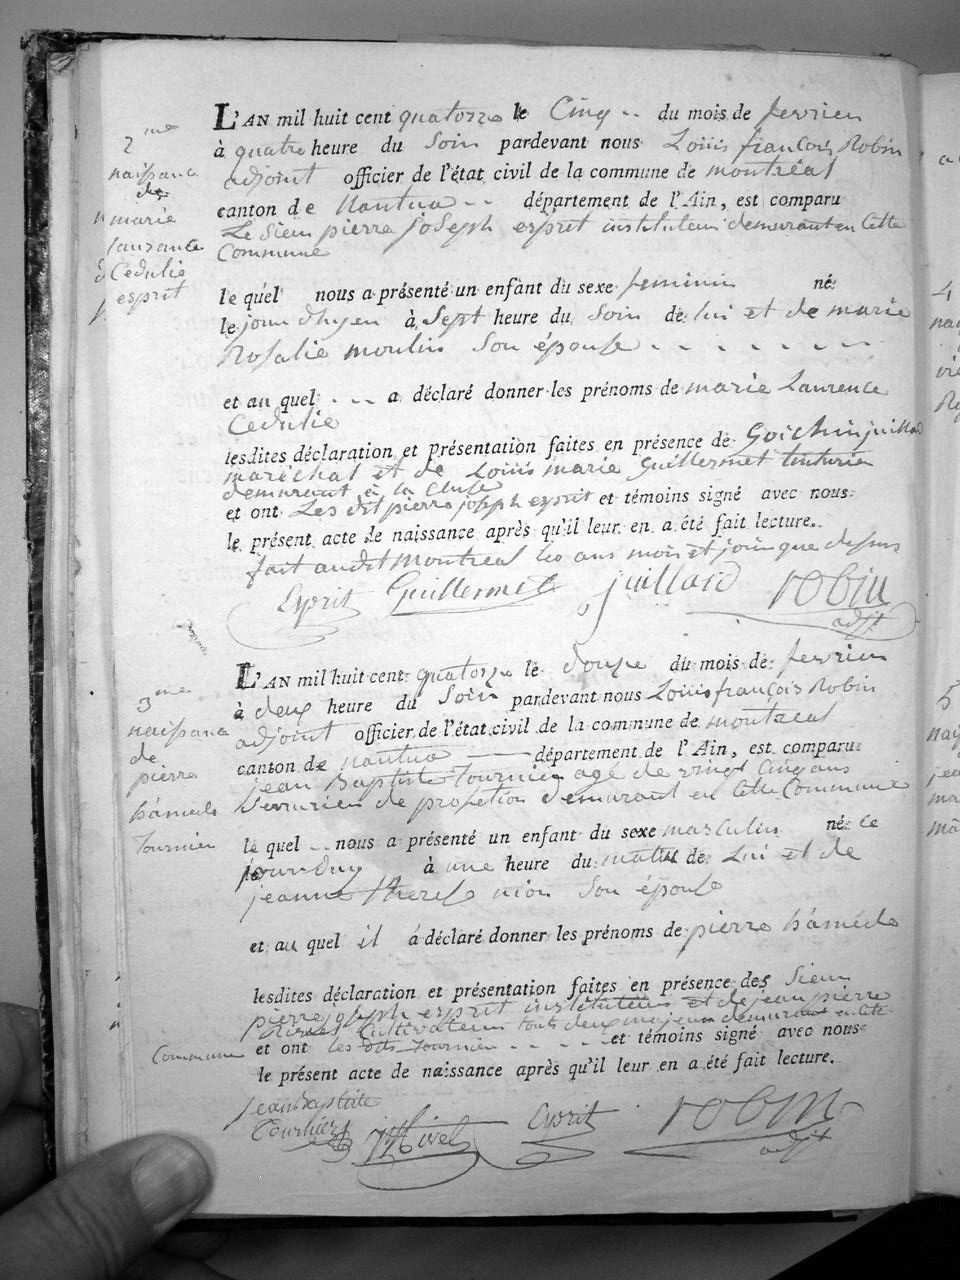 2me
naissance
de
marie
laurance
Cedulie
esprit
L'AN mil huit cent quatorze le Cinq du mois de fevrier
à quatre heure du Soir pardevant nous Louis françois Robin
adjoint officier de l'état civil de la commune de montréal
canton de Nantua département de l'Ain, est comparu
Le Sieur pierre joseph esprit instituteur demeurant en cette
Commune
lequel nous a présenté un enfant du sexe feminin né
le jour d'hyer à Sept heure du Soir de lui et de marie
Rosalie moulin Son épouse
et au quel a déclaré donner les prénoms de marie Laurence
Cedulie
lesdites déclaration et présentation faites en présence de juillard
maréchal et de Louis marie Guillermet tinturier
demeurant à la Cluse
et ont Les dit pierre joseph esprit et témoins signé avec nous
le présent acte de naissance après qu'il leur en a été fait lecture.
fait audit Montreal les ans mois et jour que dessus
Esprit Guillermet juillard robin
adjt
3me
naissance
de
pierre
hámede
Tournier
L'AN mil huit cent quatorze le douze du mois de fevrier
à deux heure du Soir pardevant nous Louis françois Robin
adjoint officier de l'état civil de la commune de montreal
canton de nantua département de l'Ain, est comparu
jean Baptiste Tournier age de vingt Cinq ans
Serrurier de profetion demurant en cette Commune
le quel nous a présenté un enfant du sexe masculin né ce
jourduy à une heure du matin de Lui et de
jeanne therese nion Son épouse
et au quel il a déclaré donner les prénoms de pierre hámede
lesdites déclaration et présentation faites en présence des Sieur
pierre joseph esprit instituteur et de jean pierre
Cultivateur touts deux majeur demurant en cete
Commune et ont les dits Tournier et témoins signé avec nous
le présent acte de naissance après qu'il leur en a été fait lecture.
jean Baptiste
Tournier Esprit robin
adjt